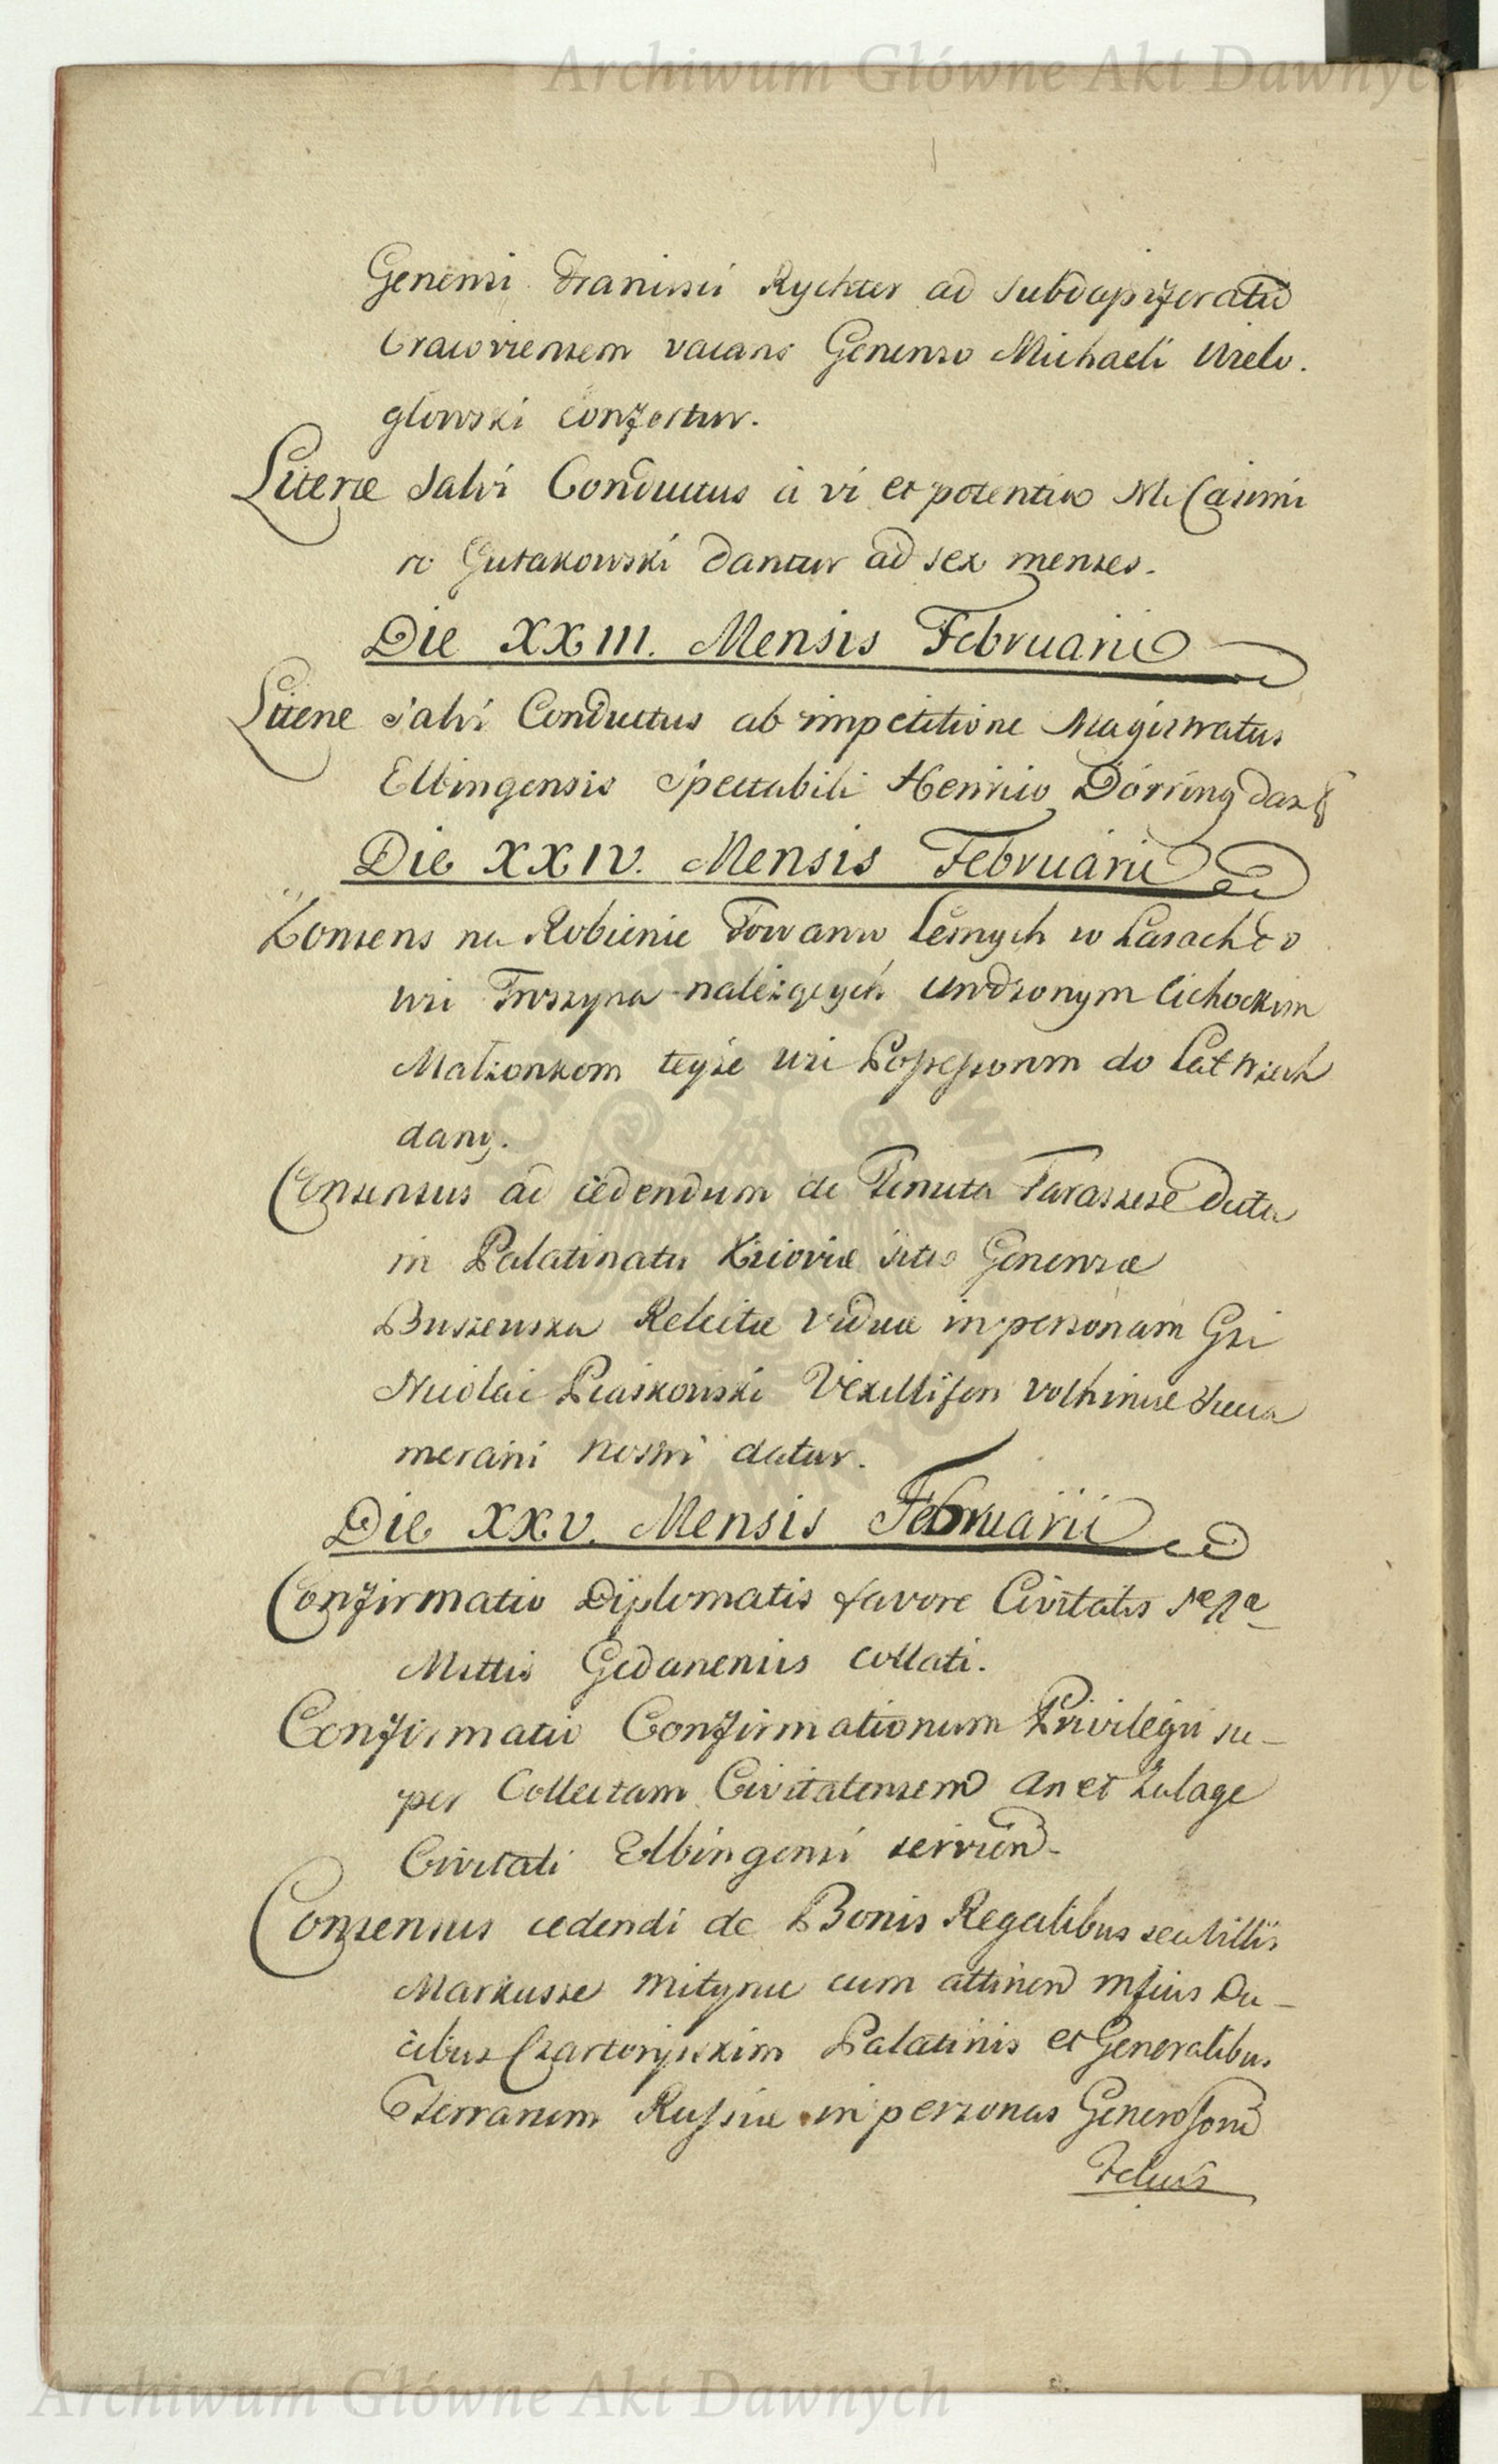 Archiwum Główne Akt Dawnych
Generosi Francisci Rychter ad subdapiferatū
Cracoviensem vacans Generoso Michaeli Wielo.
głowski confertur.
Literæ Salvi Conductus à vi et potentia M. Casimi
ro Gutakowski dantur ad sex menses.
Die XXIII. Mensis Februarii
Literæ Salvi Conductus ab impetitione Magistratus
Elbingensis Spectabili Henrico Dörring
Die XXIV. Mensis Februarii
Konsens na Robienie Towarow leśnych w Lasach do
wsi Troszyna należących Urodzonym Cichockim
Małżonkom teyże wsi Possessorom do Lat trzech
dany.
Consensus ad cedendum de Tenuta Taraszese dicta
in Palatinatu Kijoviæ sita Generosæ
Buszenska Relictæ Viduæ in personam Gsi
Nicolai Piaskowski Vexilliferi Volhiniæ Succa
merarii nostri datur.
Die XXV. Mensis Februarii
Confirmatio Diplomatis favore Civitatis
Mttis Gedanensis collati.
Confirmatio Confirmationum Privilegii su-
per Collectam Civitatensem An et Zulage
Civitati Elbingensi servien.
Consensus cedendi de Bonis Regalibus seu Villis
Markusze mitynie cum attinen Mficis Du-
cibus Czartoryiskim Palatinis et Generalibus
Terrarum Russiæ in personas Generosorū
Archiwum Główne Akt Dawnych